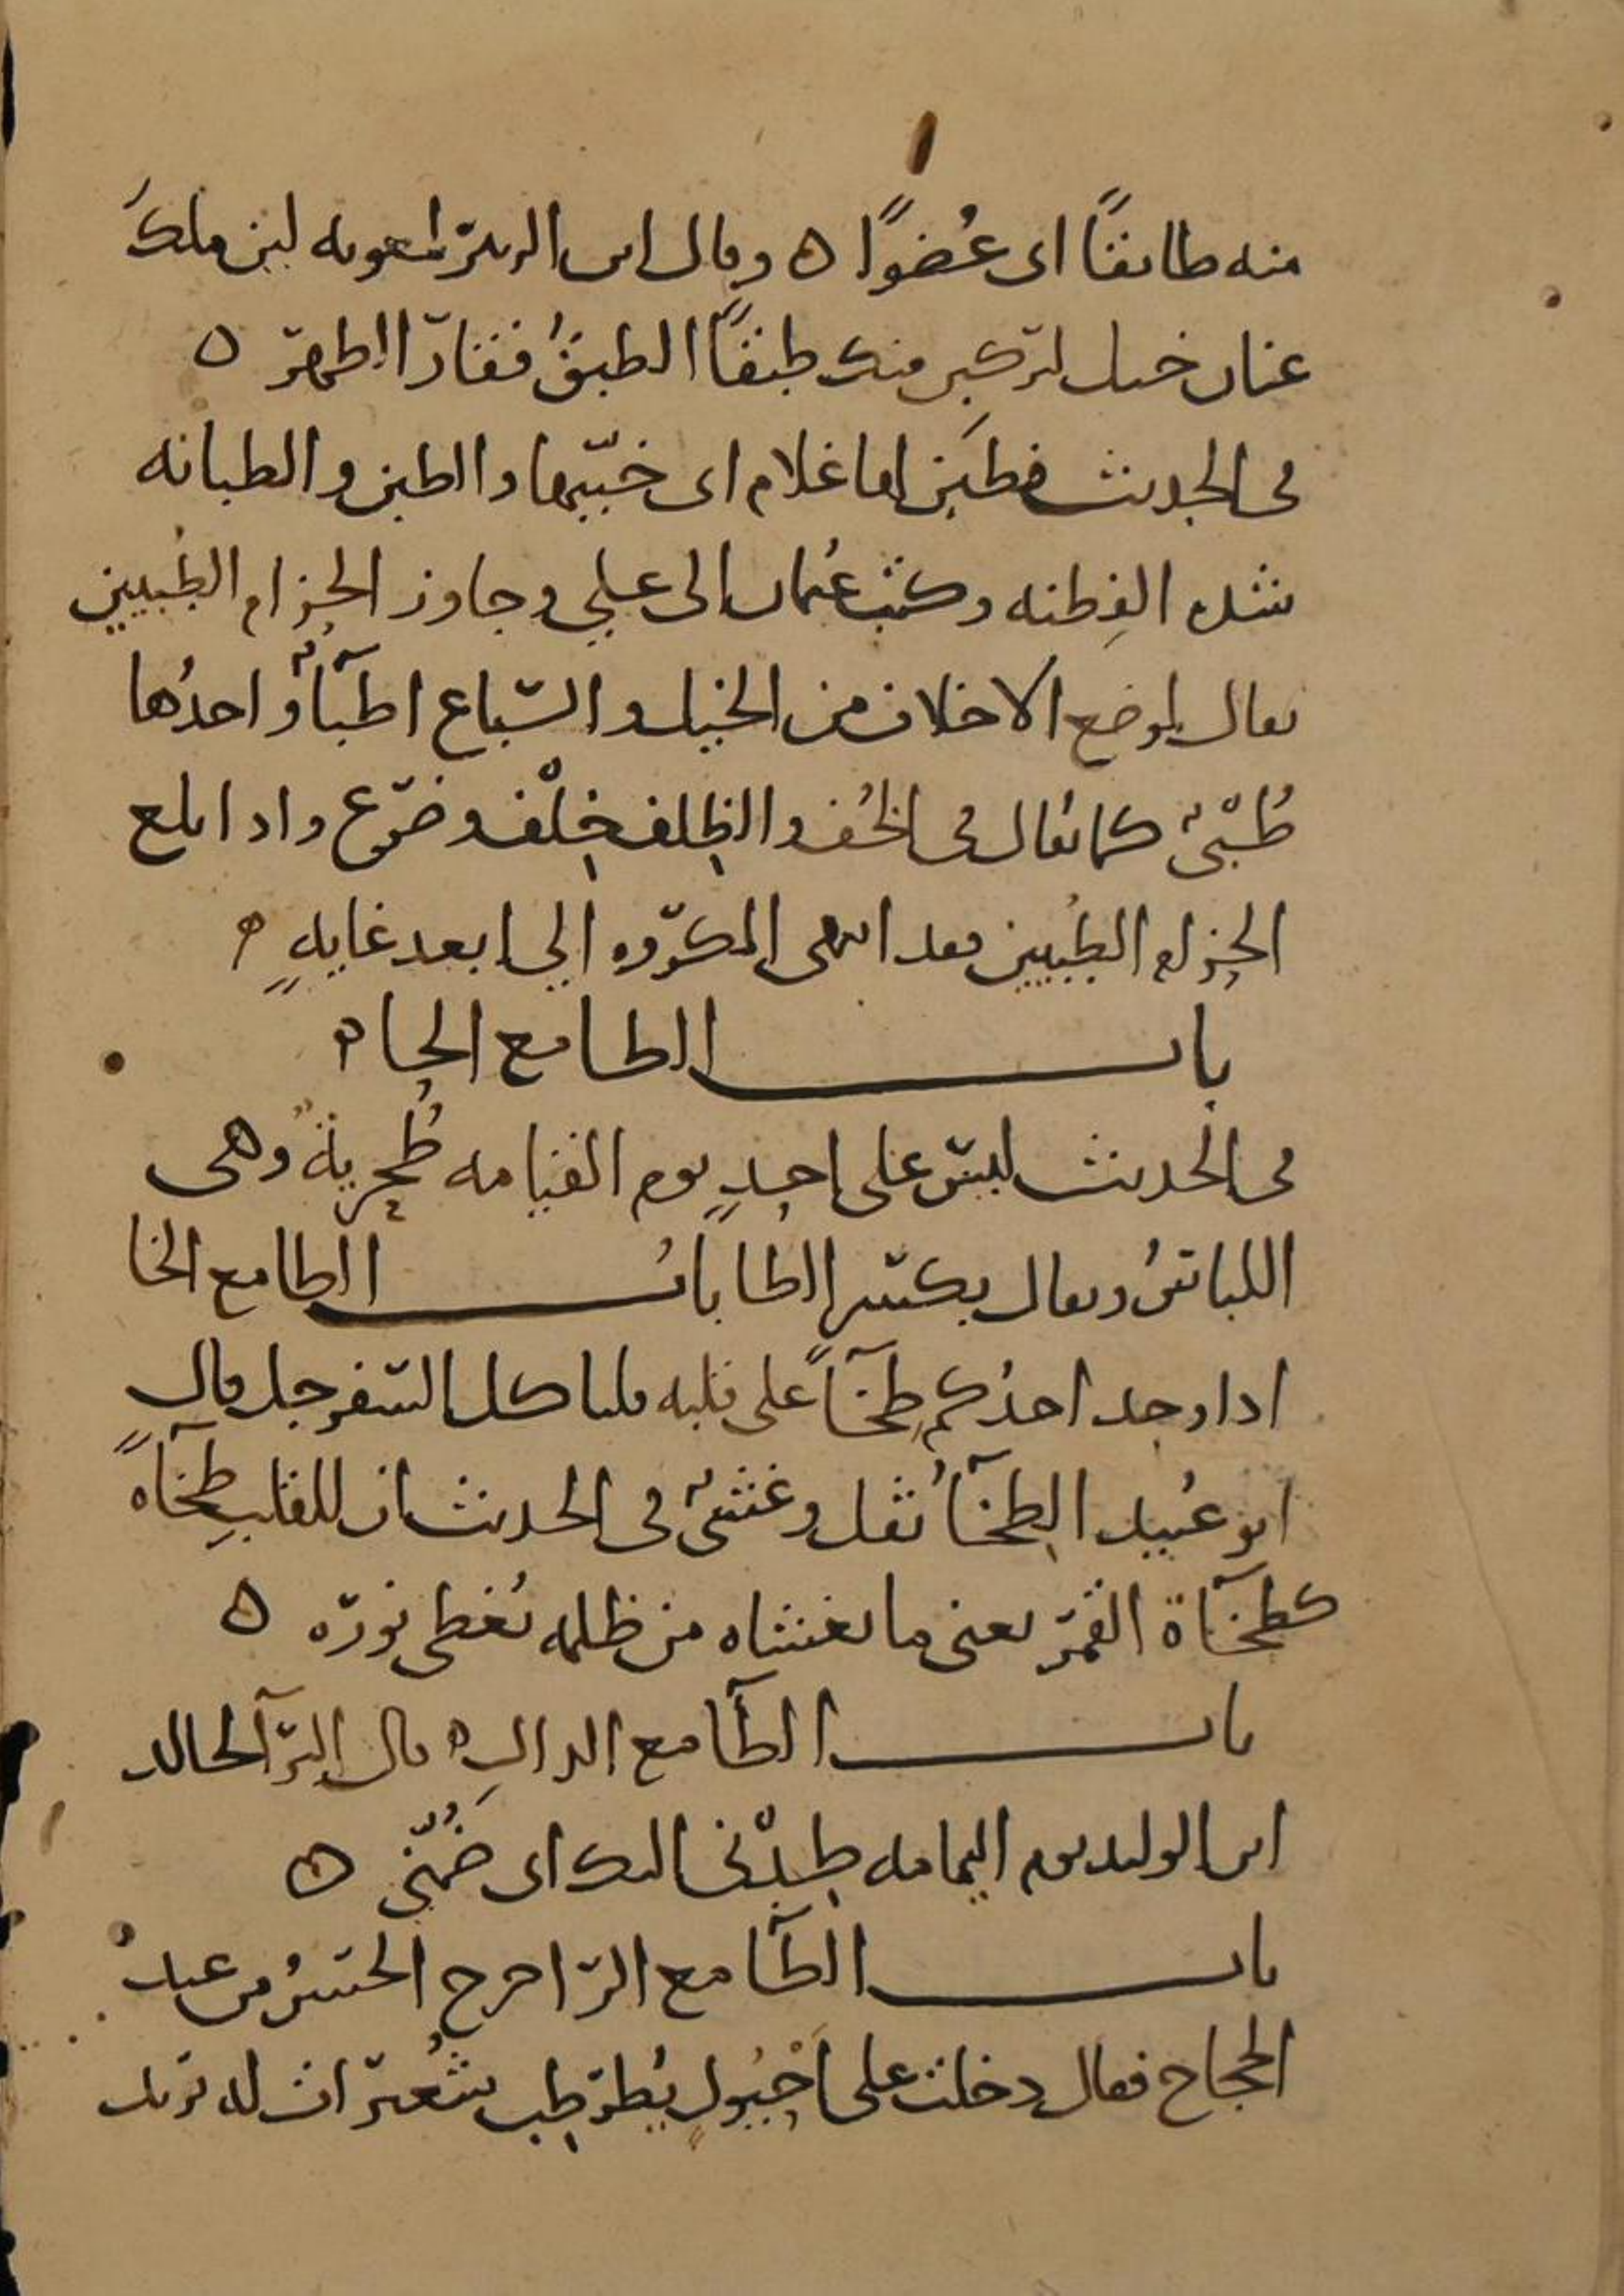 منه طابقًا اى عُضوًا ه وقال ابن الزبير لمعويه لين ملك
عنان خيل لتركبن منك طبقًا الطبقُ فقار الظهر ه
فى الحديث فطبن لها غلام اى خببها والطبن والطبانه
شدة الفِطنه وكتب عُثمان الى علي وجاوز الحِزام الطُبيين
يقال لموضع الاخلاف من الخيل والسباع اطبآؤ احدُها
طُبْىٌ كما يُقال فى الخُف والظِلف خِلْف وضرع واذا بلغ
الحِزام الطُبيين فقد انتهى المكروه إلى ابعد غايةٍ ه
باب الطا مع الحا ه
فى الحديث ليس على احدٍ يوم القيامه طُحرِبةٌ وهى
اللباسُ ويقال بكسر الطا بابُ الطا مع الخا
اذا وجد احدُكم طخآً على قلبه فلياكل السفرجل قال
ابو عُبيد الطخآُ ثقل وغشىٌ فى الحديث ان للقلب طخآةً
كطخآة القمر يعنى ما يغشاه من ظلمه يُغطى نوره ه
باب الطآ مع الدالِ ه قال البرآ لخالد
ابن الوليد يوم اليمامه طِدْنى اليك اى ضُمّنى ه
باب الطآ مع الرا خرج الحسنُ من عند
الحجاج فقال دخلت على اُحَيْوِلٍ يُطرطِب شُعيرات له نريد